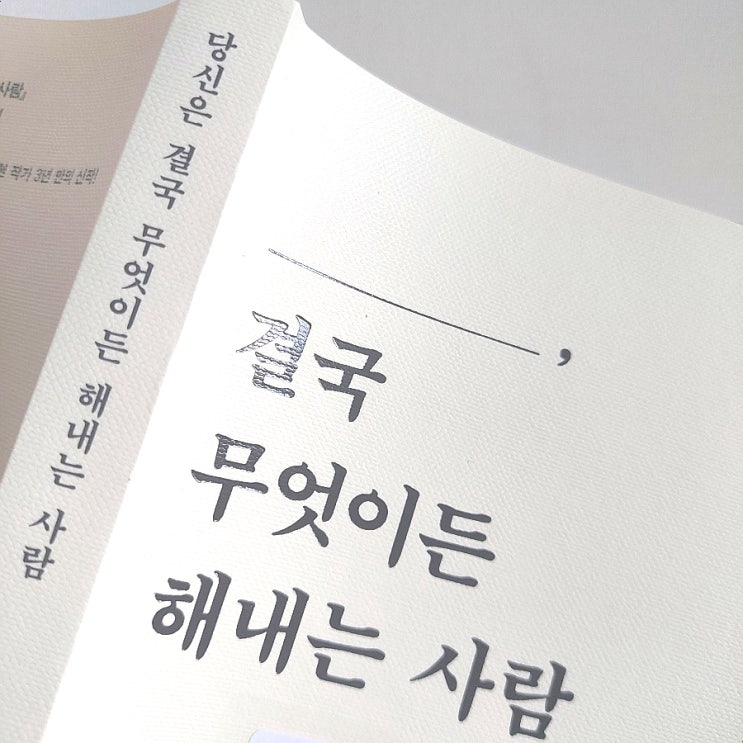 사람』
작가 3년 만의 신작!
당신은 결국 무엇이든 해내는 사람
,
결국
무엇이든
해내는 사람